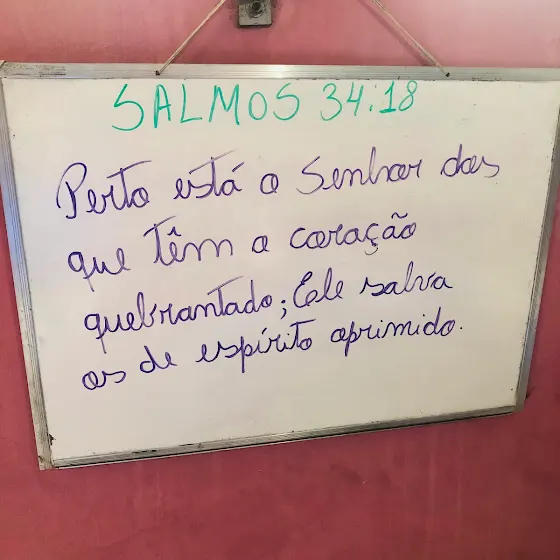 SALMOS 34:18
Perto está o Senhor dos
que têm o coração
quebrantado; Ele salva
os de espírito oprimido.